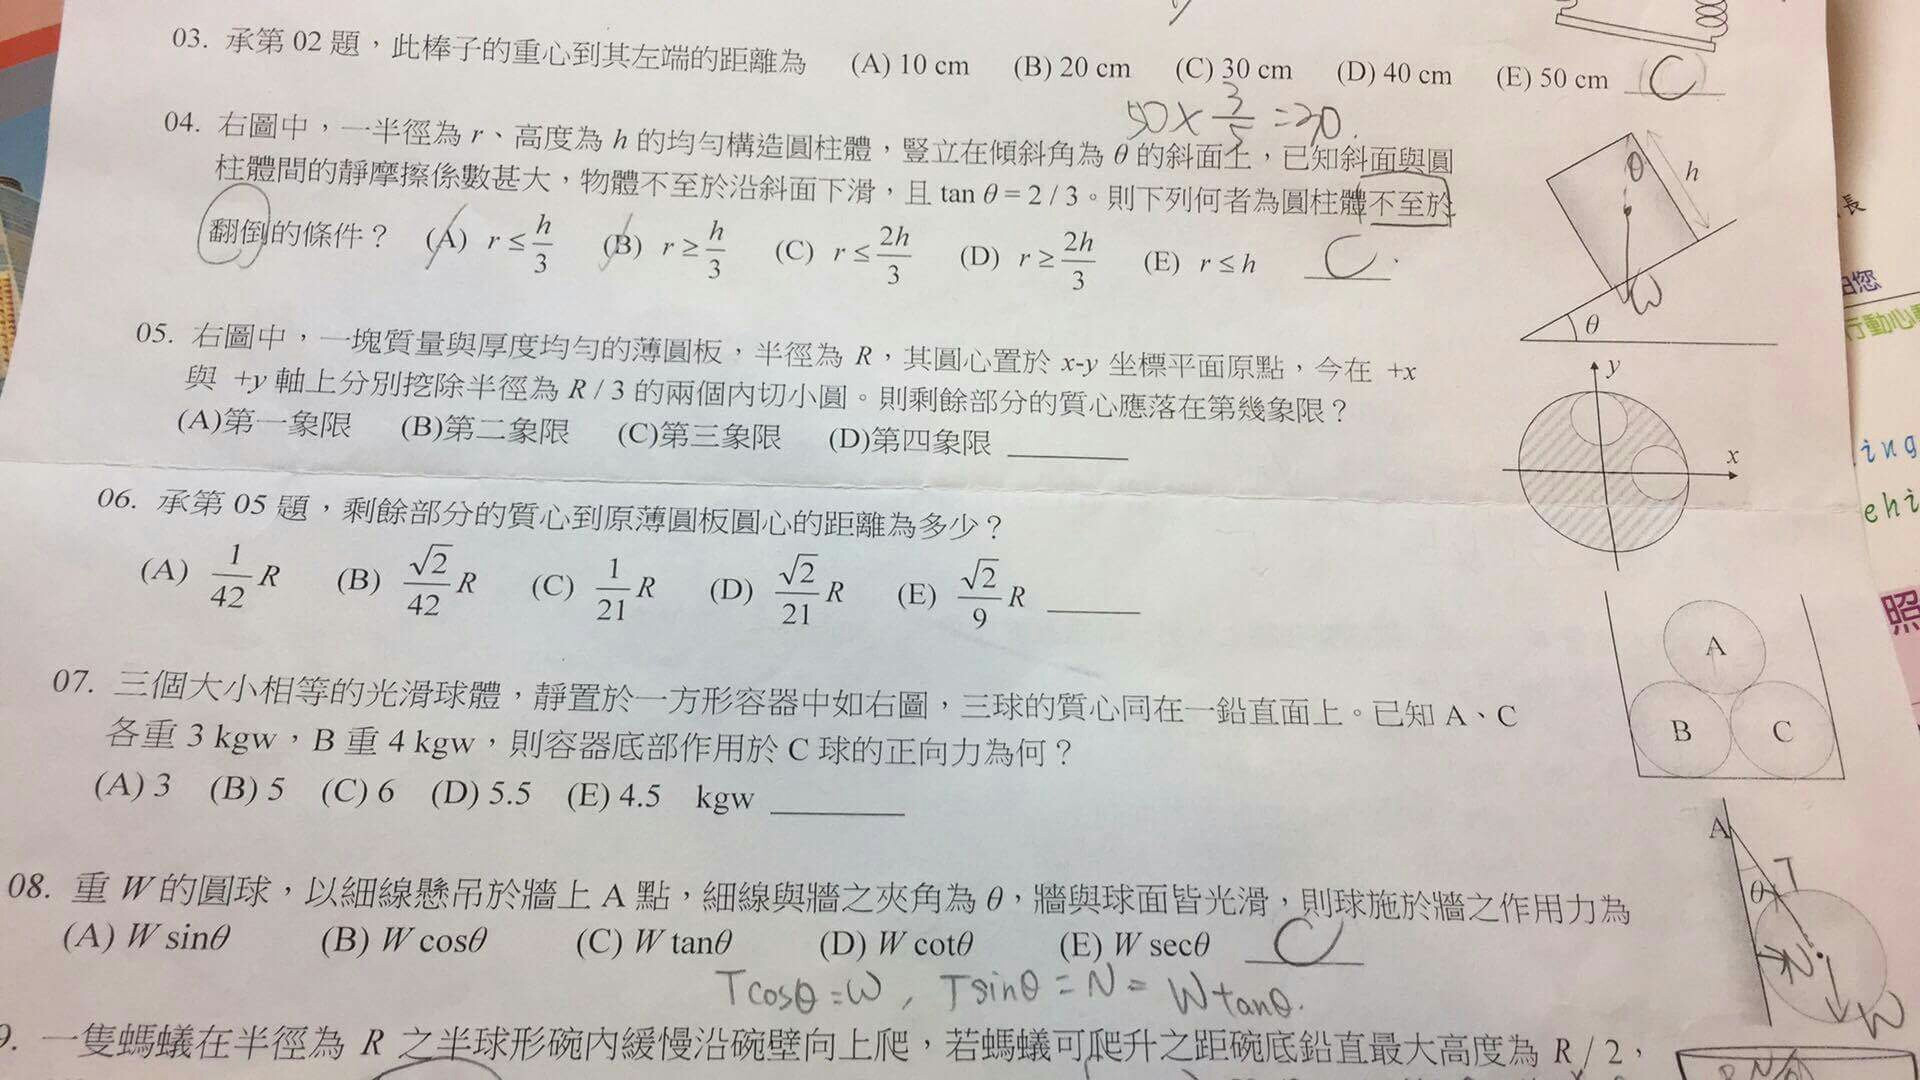 03. 承第 02 題，此棒子的重心到其左端的距離為 (A) 10 cm (B) 20 cm (C) 30 cm (D) 40 cm (E) 50 cm C
50 × 3/5 = 30.
04. 右圖中，一半徑為 r、高度為 h 的均勻構造圓柱體，豎立在傾斜角為 θ 的斜面上，已知斜面與圓
柱體間的靜摩擦係數甚大，物體不至於沿斜面下滑，且 tan θ = 2 / 3。則下列何者為圓柱體不至於
翻倒的條件？ (A) r ≤ h/3 (B) r ≥ h/3 (C) r ≤ 2h/3 (D) r ≥ 2h/3 (E) r ≤ h C
θ
h
W
θ
05. 右圖中，一塊質量與厚度均勻的薄圓板，半徑為 R，其圓心置於 x-y 坐標平面原點，今在 +x
與 +y 軸上分別挖除半徑為 R / 3 的兩個內切小圓。則剩餘部分的質心應落在第幾象限？
(A)第一象限 (B)第二象限 (C)第三象限 (D)第四象限
y
x
06. 承第 05 題，剩餘部分的質心到原薄圓板圓心的距離為多少？
(A) 1/42 R (B) √2/42 R (C) 1/21 R (D) √2/21 R (E) √2/9 R
07. 三個大小相等的光滑球體，靜置於一方形容器中如右圖，三球的質心同在一鉛直面上。已知 A、C
各重 3 kgw，B 重 4 kgw，則容器底部作用於 C 球的正向力為何？
(A) 3 (B) 5 (C) 6 (D) 5.5 (E) 4.5 kgw
A
B C
08. 重 W 的圓球，以細線懸吊於牆上 A 點，細線與牆之夾角為 θ，牆與球面皆光滑，則球施於牆之作用力為
(A) W sinθ (B) W cosθ (C) W tanθ (D) W cotθ (E) W secθ C
Tcosθ = W , Tsinθ = N = Wtanθ.
A
T
θ
N
W
9. 一隻螞蟻在半徑為 R 之半球形碗內緩慢沿碗壁向上爬，若螞蟻可爬升之距碗底鉛直最大高度為 R / 2，
長
行動心
ing
ehi
照